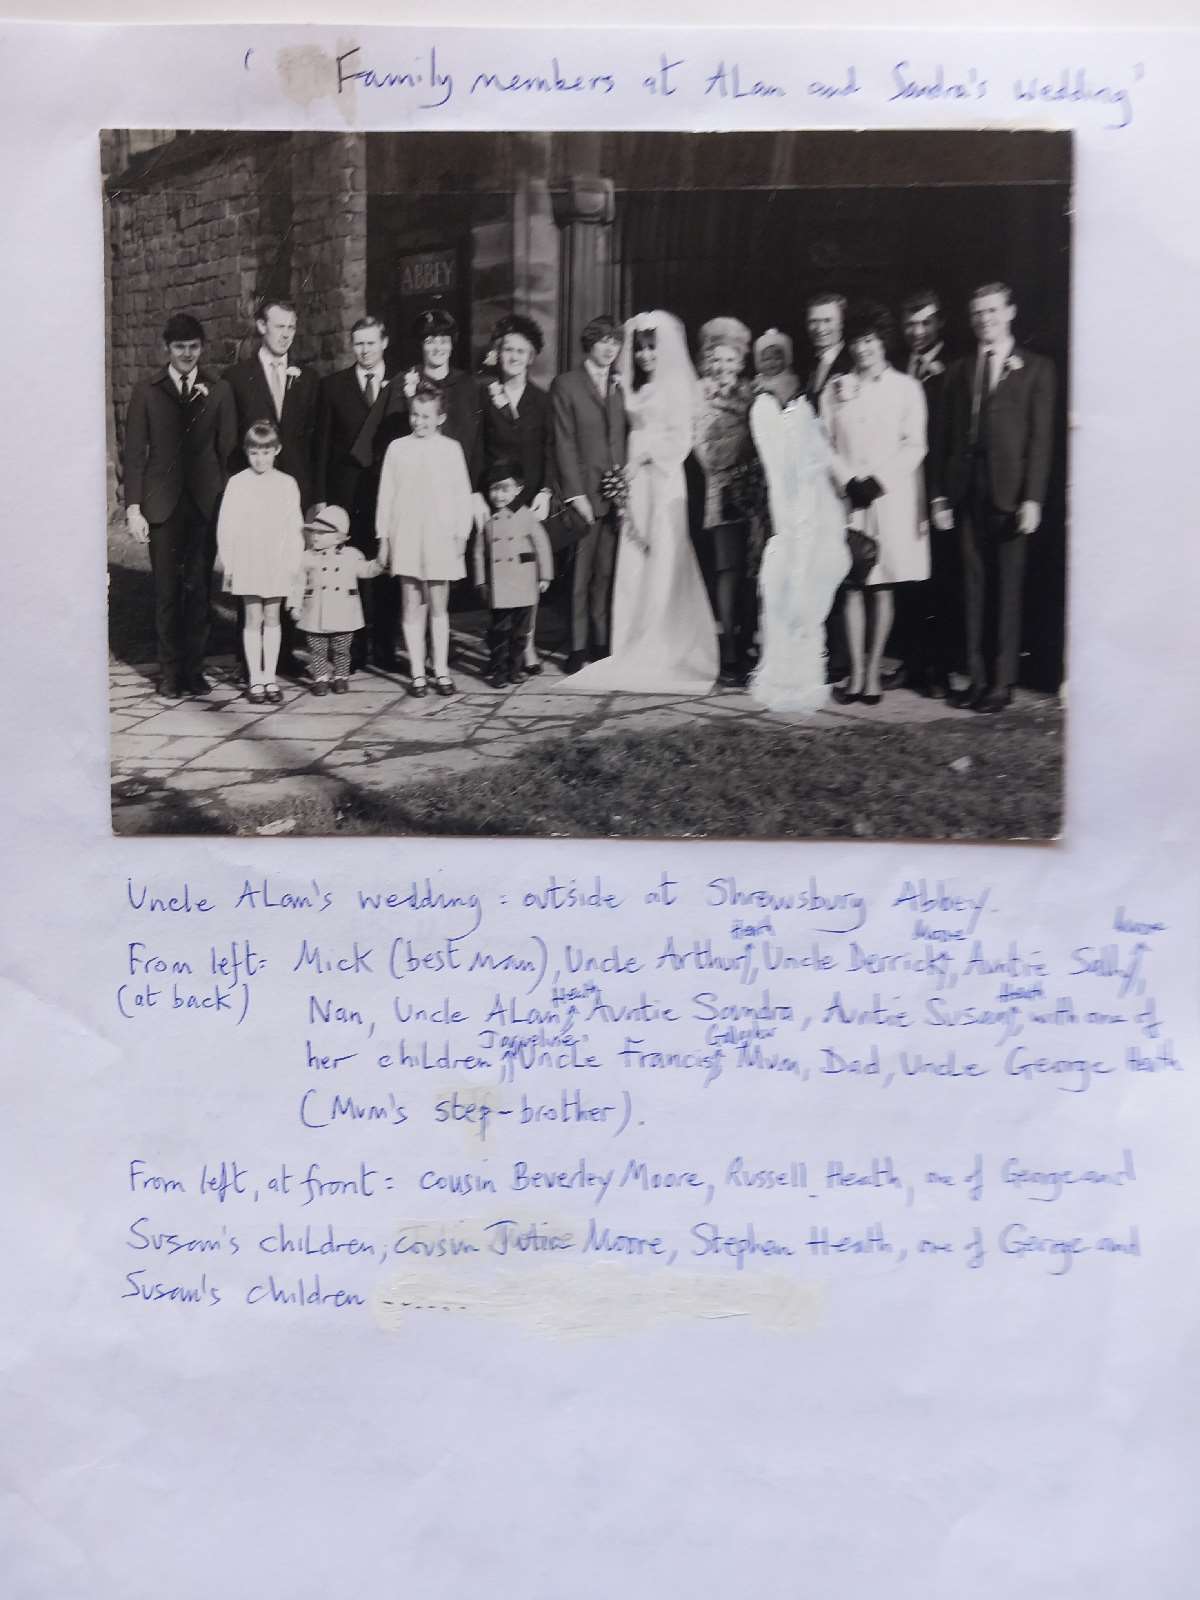 ' Family members at ALan and Sandra's wedding"
ABBEY
Uncle ALan's wedding : outside at Shrewsbury Abbey.
Heath Moore Moore
From left: Mick (best man), Uncle Arthur, Uncle Derrick, Auntie Sally,
(at back)
Heath Heath
Nan, Uncle ALan, Auntie Sandra, Auntie Susan, with one of
Jacqueline
her children, Uncle Francis, Mum, Dad, Uncle George Heath
(Mum's step-brother).
From left, at front: cousin Beverley Moore, Russell Heath, one of George and
Susan's children, cousin Moore, Stephen Heath, one of George and
Susan's children ------